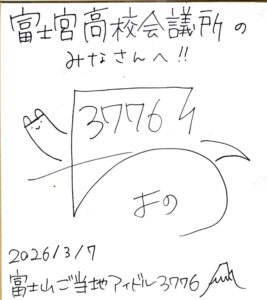 富士宮高校会議所の
みなさんへ!!
3776
よの
2026/3/7
富士山ご当地アイドル3776